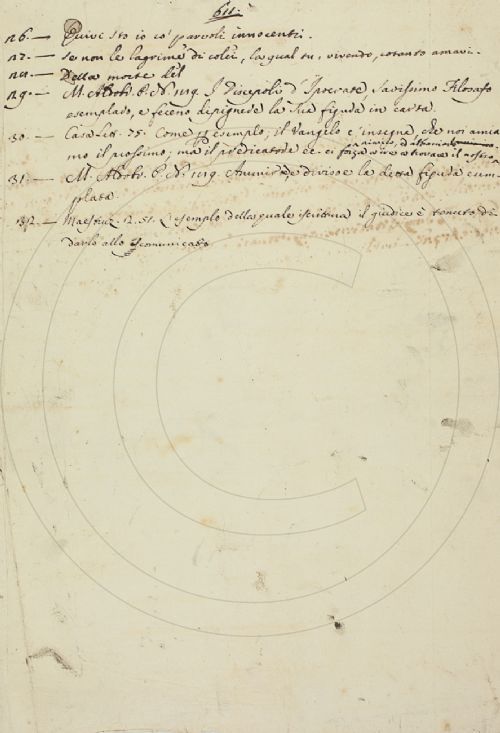 611.
26. — Quivi sto io co' parvoli innocenti.
27. — se non le lagrime di colei, la qual tu, vivendo, cotanto amavi.
28. — Della morte del
29. — M. Aldob. P. N. 119. I Discepoli d'Ipocrate savissimo Filosafo
esemplado, e feceno dipignede la sua figuda in carta.
30. — Casa 25. Come per esemplo, il Vangelo c'insegna, che noi amia
mo il prossimo, ma il predicatode ec. ci
forza a il nostro
31. — M. Aldob. P. N. 119. divisoe la detta figuda esem-
plata
32. — Maestruz. 2. 51. esemplo della quale iscrittuda il giudice è tenuto di
darlo allo scomunicato